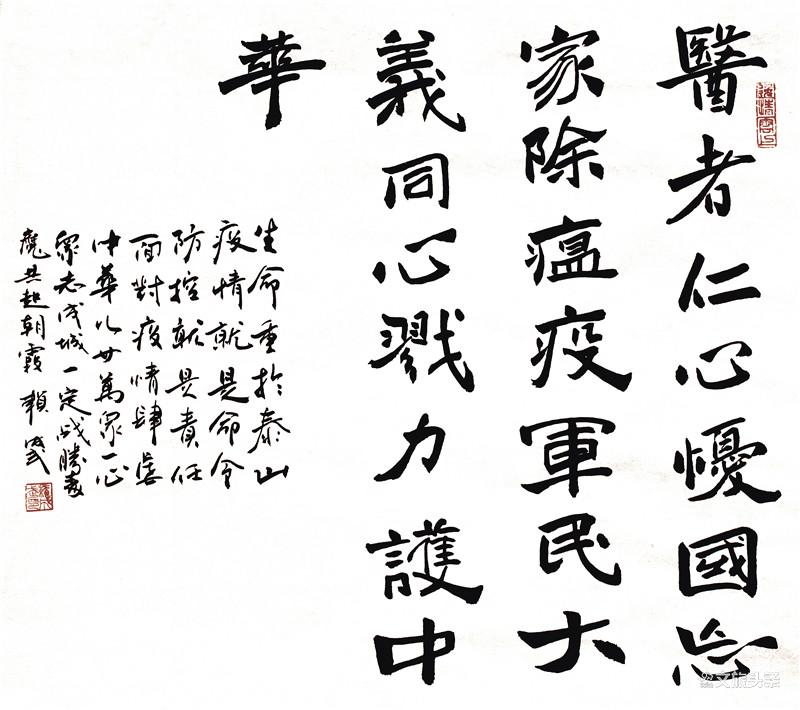 醫者仁心懮國忘
家除瘟疫軍民大
義同心戮力護中
華
生命重於泰山
疫情就是命令
防控就是責任
面對疫情肆虐
中華儿女萬眾一心
眾志成城一定战勝毒
魔共起朝霞 賴
文旅头条